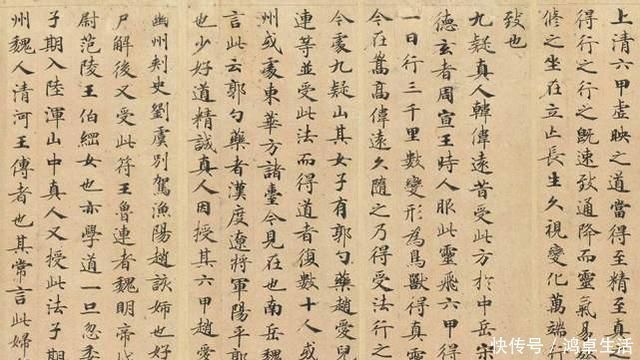 上清六甲虛映之道當得至精至真
得行之行之既速致通降而靈氣易
修之坐在立亡長生久視變化萬端行
致也
九疑真人韓偉遠昔受此方於中岳宋
德玄者周宣王時人服此靈飛六甲得
一日行三千里數變形為鳥獸得真靈
今在嵩高偉遠久隨之乃得受法行之
今處九疑山其女子有郭勺藥趙愛兒
連等並受此法而得道者復數十人或
州或處東華方諸臺今見在也南岳魏
言此云郭勺藥者漢度遼將軍陽平郭
也少好道精誠真人因授其六甲趙愛
幽州刾史劉虞別駕漁陽趙該姊也好
尸解後又受此符王魯連者魏明帝城
尉范陵王伯綱女也亦學道一旦忽委
子期入陸渾山中真人又授此法子期
州魏人清河王傳者也其常言此婦
快传号/鸿卓生活